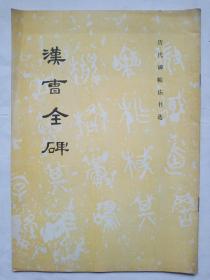 历代碑帖法书选
漢曹全碑